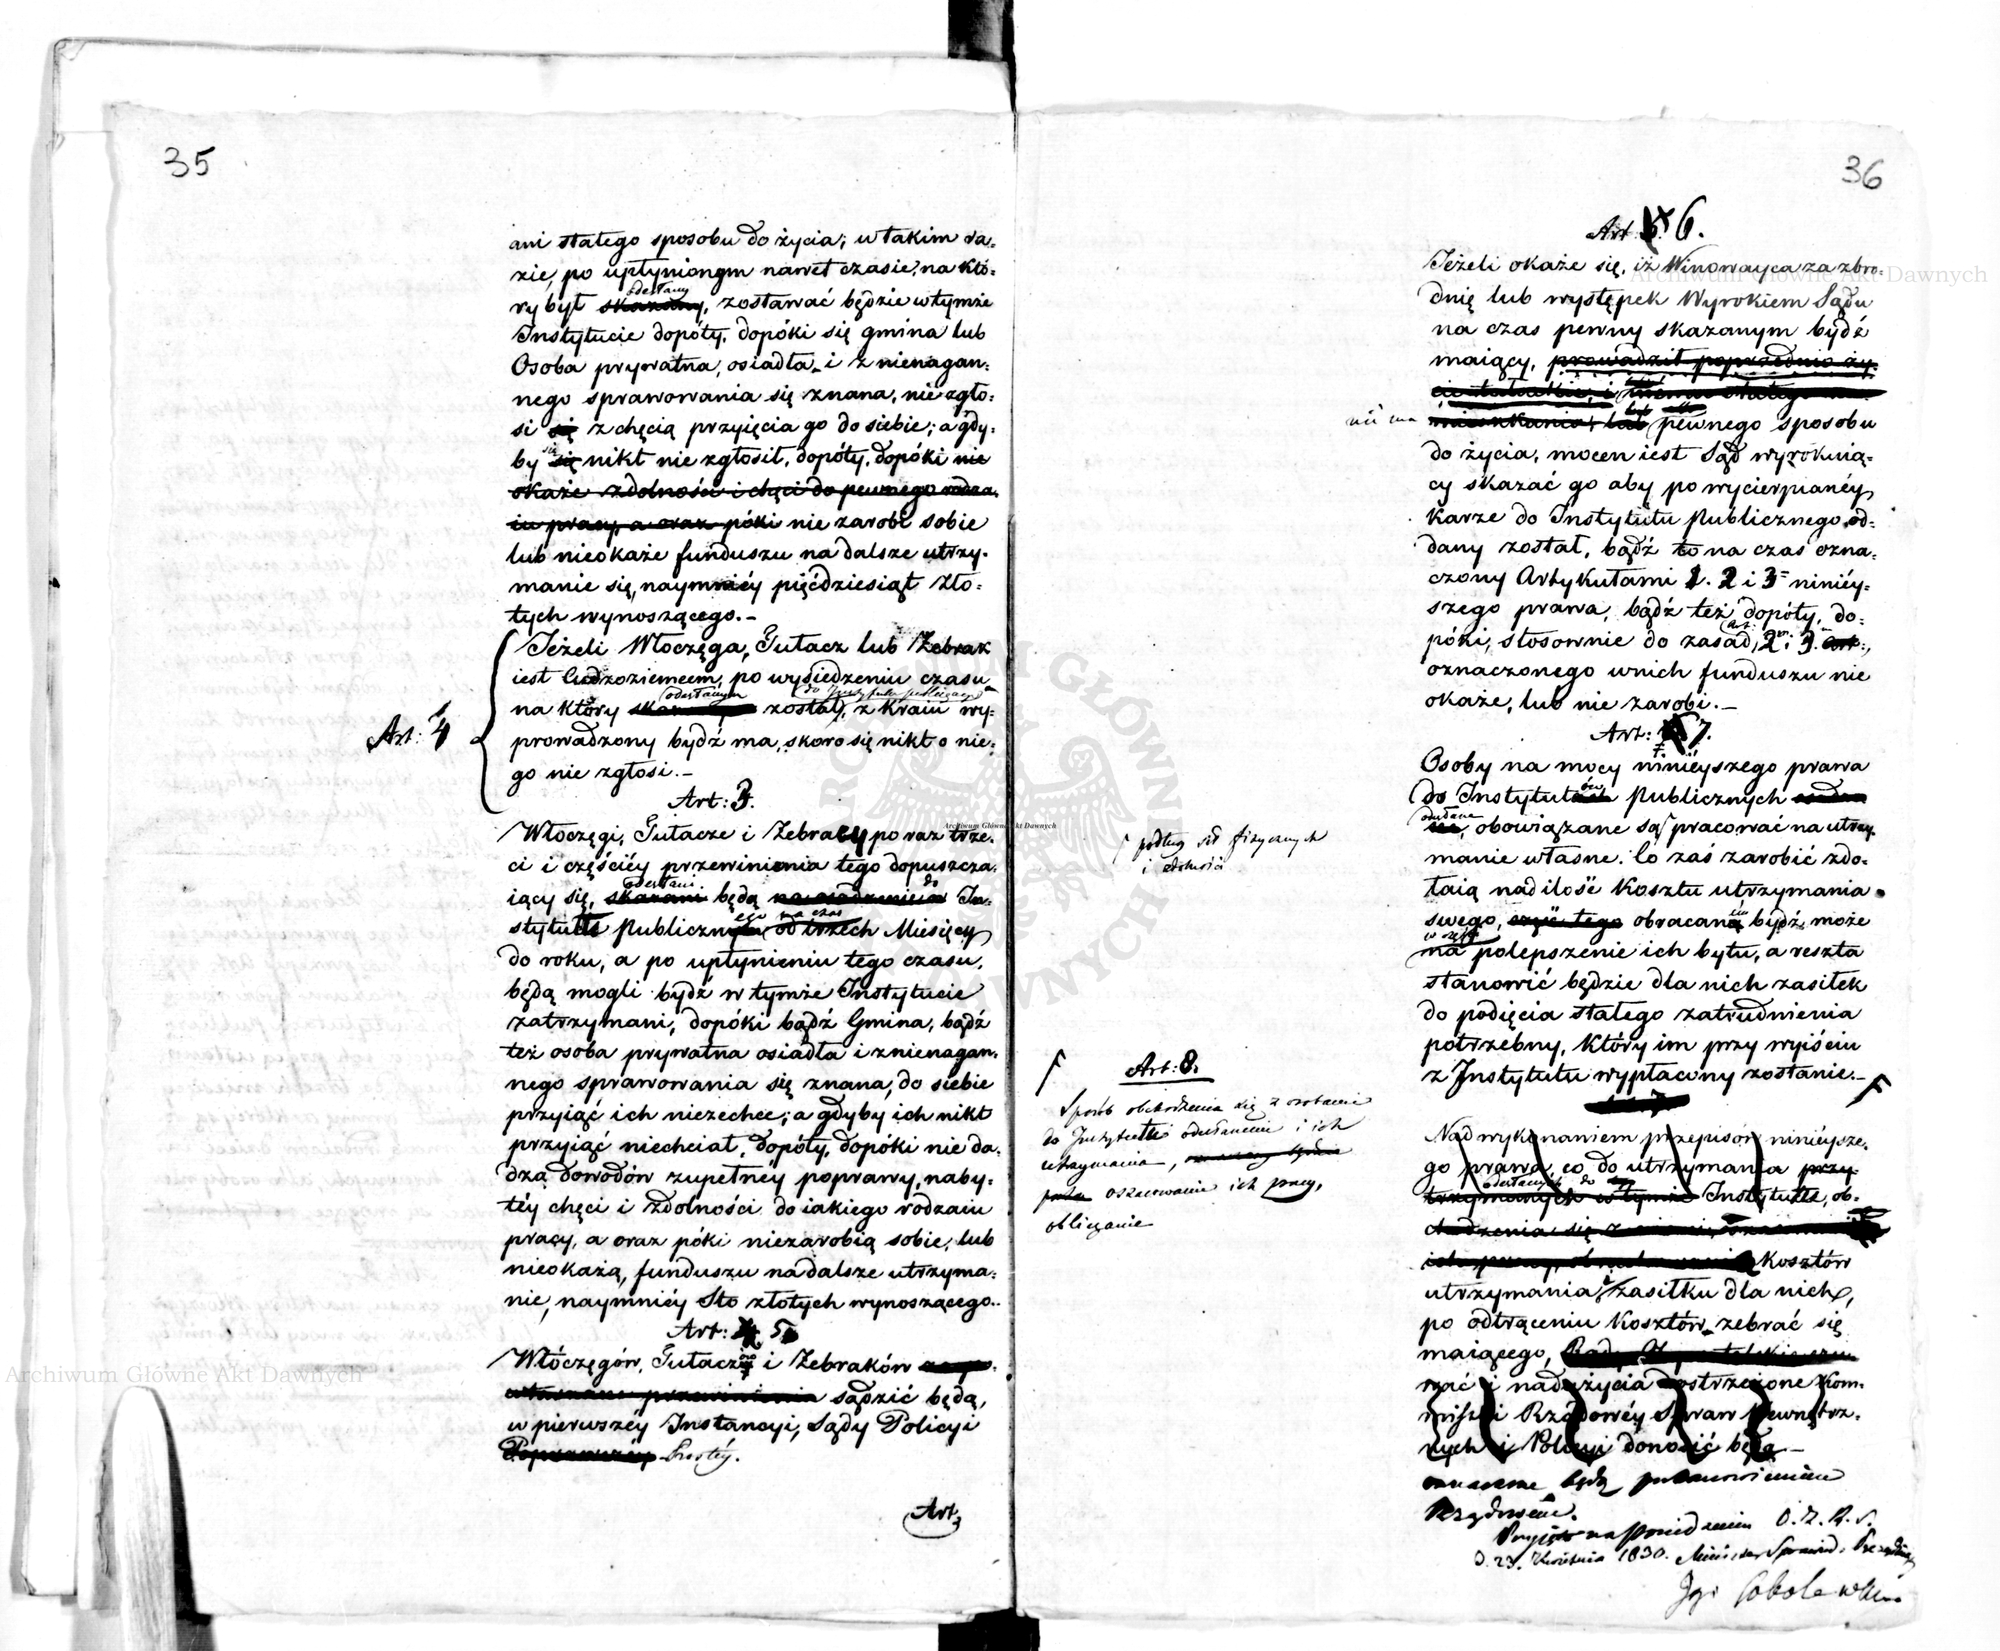 35
ani stałego sposobu do życia; w takim ra-
zie, po upłynionym nawet czasie, na któ-
odesłany
ry był skazany, zostawać będzie w tymże
Instytucie dopóty, dopóki się gmina lub
Osoba prywatna, osiadła i z nienagan-
nego sprawowania się znana, nie zgło-
si się z chęcią przyięcia go do siebie; a gdy-
by się nikt nie zgłosił, dopóty, dopóki nie
okaże zdolności i chęci do pewnego rodza-
iu pracy, a oraz póki nie zarobi sobie
lub nieokaże funduszu na dalsze utrzy-
manie się, naymniéy pięćdziesiąt zło-
tych wynoszącego.-
Art: 4
Jeżeli Włoczęga, Tułacz lub Żebrak
iest Cudzoziemcem, po wysiedzeniu czasu
odesłanym do Instytutu publicznego
na który został, z Kraiu wy-
prowadzony bydź ma, skoro się nikt o nie-
go nie zgłosi.-
Art: 3.
Włoczęgi, Tułacze i Żebracy po raz trze-
ci i częściéy przewinienia tego dopuszcza-
odesłani do
iący się, skazani będą na osadzenie w In-
ego na czas
stytutu Publicznego od trzech Miesięcy
do roku, a po upłynieniu tego czasu,
będą mogli bydź w tymże Instytucie
zatrzymani, dopóki bądź Gmina, bądź
też osoba prywatna osiadła i z nienagan-
nego sprawowania się znana, do siebie
przyiąć ich niezechce; a gdyby ich nikt
przyiąć niechciał, dopóty, dopóki nie da-
dzą dowodów zupełnéy poprawy, naby-
téy chęci i zdolności do iakiego rodzaiu
pracy, a oraz póki niezarobią sobie, lub
nieokażą, funduszu na dalsze utrzyma-
nie, naymniéy Sto złotych wynoszącego.-
Art: 5
Włóczęgów, Tułaczów i Żebraków
sądzić będą,
w pierwszéy Instancyi, Sądy Policyi
Poprawczéy Prostéy.
Art.
36
Art: 6.
Jeżeli okaże się, iż Winowayca za zbro-
dnię lub występek Wyrokiem Sądu
na czas pewny skazanym bydź
maiący, prowadził poprzednio ży-
cie tułackie, i
nié ma
mieszkania, lub pewnego sposobu
do życia, mocen iest Sąd wyrokuią-
cy skazać go aby po wycierpianéy
Karze do Instytutu Publicznego od-
dany został, bądź to na czas ozna-
czony Artykułami 1. 2 i 3 niniéy-
szego prawa, bądź też dopóty, do-
Art:
póki, stosownie do zasad, 2. i 3. Art:,
oznaczonego w nich funduszu nie
okaże, lub nie zarobi.-
Art: 7.
Osoby na mocy niniéyszego prawa
do Instytutów Publicznych
odesłane
obowiązane są pracować na utrzy-
podług sił fizycznych
i zdolności
manie własne. Co zaś zarobić zdo-
łaią nad ilość Kosztu utrzymania
swego, część tego obracaną bydź może
w części
na polepszenie ich bytu, a reszta
stanowić będzie dla nich zasiłek
do podięcia stałego zatrudnienia
potrzebny, który im przy wyiściu
z Instytutu wypłacony zostanie.-
Art: 8.
Sposób obchodzenia się z osobami
do Instytutu odesłanemi i ich
utrzymania,
oszacowanie ich pracy,
obliczanie
Nad wykonaniem przepisów niniéysze-
go prawa, co do utrzymania przy-
odesłanych do
trzymanych w tymże Instytucie, ob-
chodzenia się z
ich pracy, Kosztów
utrzymania, i zasiłku dla nich,
po odtrąceniu Kosztów zebrać się
maiącego,
wać i nadużycia postrzeżone Kom-
missyi Rządowéy Spraw Wewnętrz-
nych i Policyi donosić będą.-
oznaczone będą postanowieniem
Rządowém.
Przyjęto na posiedzeniu
D. 23 Kwietnia 1830. Minister Sprawied. Prezyduiący
Ign Sobolewski
Archiwum Główne Akt Dawnych
Archiwum Główne Akt Dawnych
Archiwum Główne Akt Dawnych